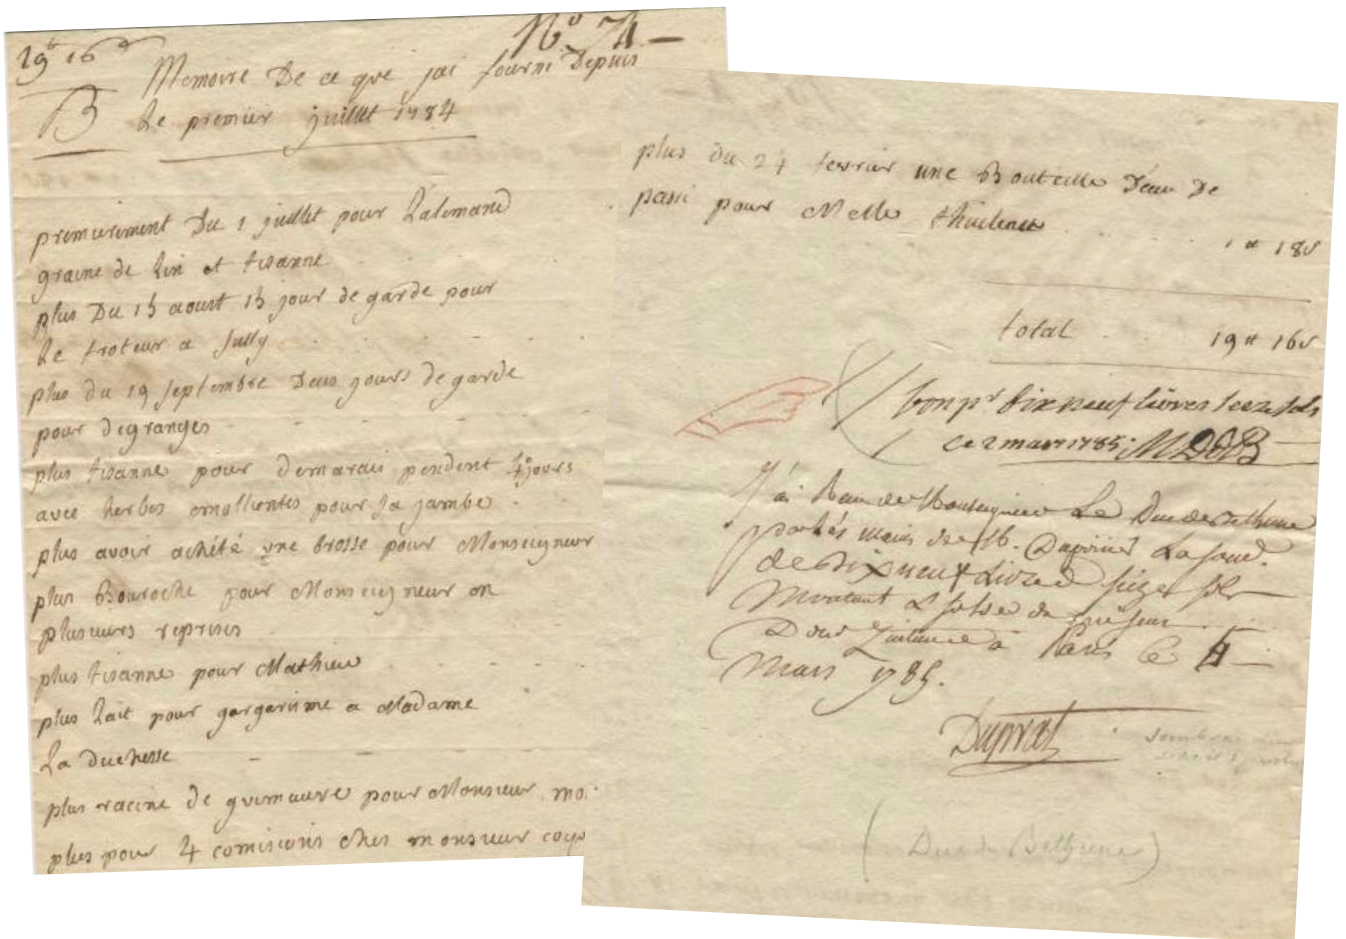 19# 16s
No 74
B
Memoire De ce que jai fourni Depuis
Le premier juillet 1784
premierement Du 1 juillet pour Lalemand
graine de Lin et tisanne
plus Du 15 aoust 15 jour de garde pour
Le troteur a Sully
plus du 19 septembre Deus jours de garde
pour degranges
plus tisanne pour demarais pendent 4 jours
avec herbes emollientes pour sa jambe
plus avoir achété une brosse pour Monseigneur
plus Bouroche pour Monseigneur en
plusieurs reprises
plus tisanne pour Mathieu
plus Lait pour gargarisme a Madame
La duchesse
plus racine de guimauve pour Monsieur
plus pour 4 comisions ches monsieur
plus du 24 fevrier une Bouteille D'eau De
passi pour Melle
1# 18s
total 19# 16s
bon pr dix neuf livres seize sols
ce 2 mars 1785. MDDB
J'ai Recu de Monseigneur Le Duc de Bethune
par les mains de M.
de Dix neuf Livres seize sols
Montant du present
Dont Quittance a Paris ce 4
Mars 1785.
Duprat
(Duc de Bethune)